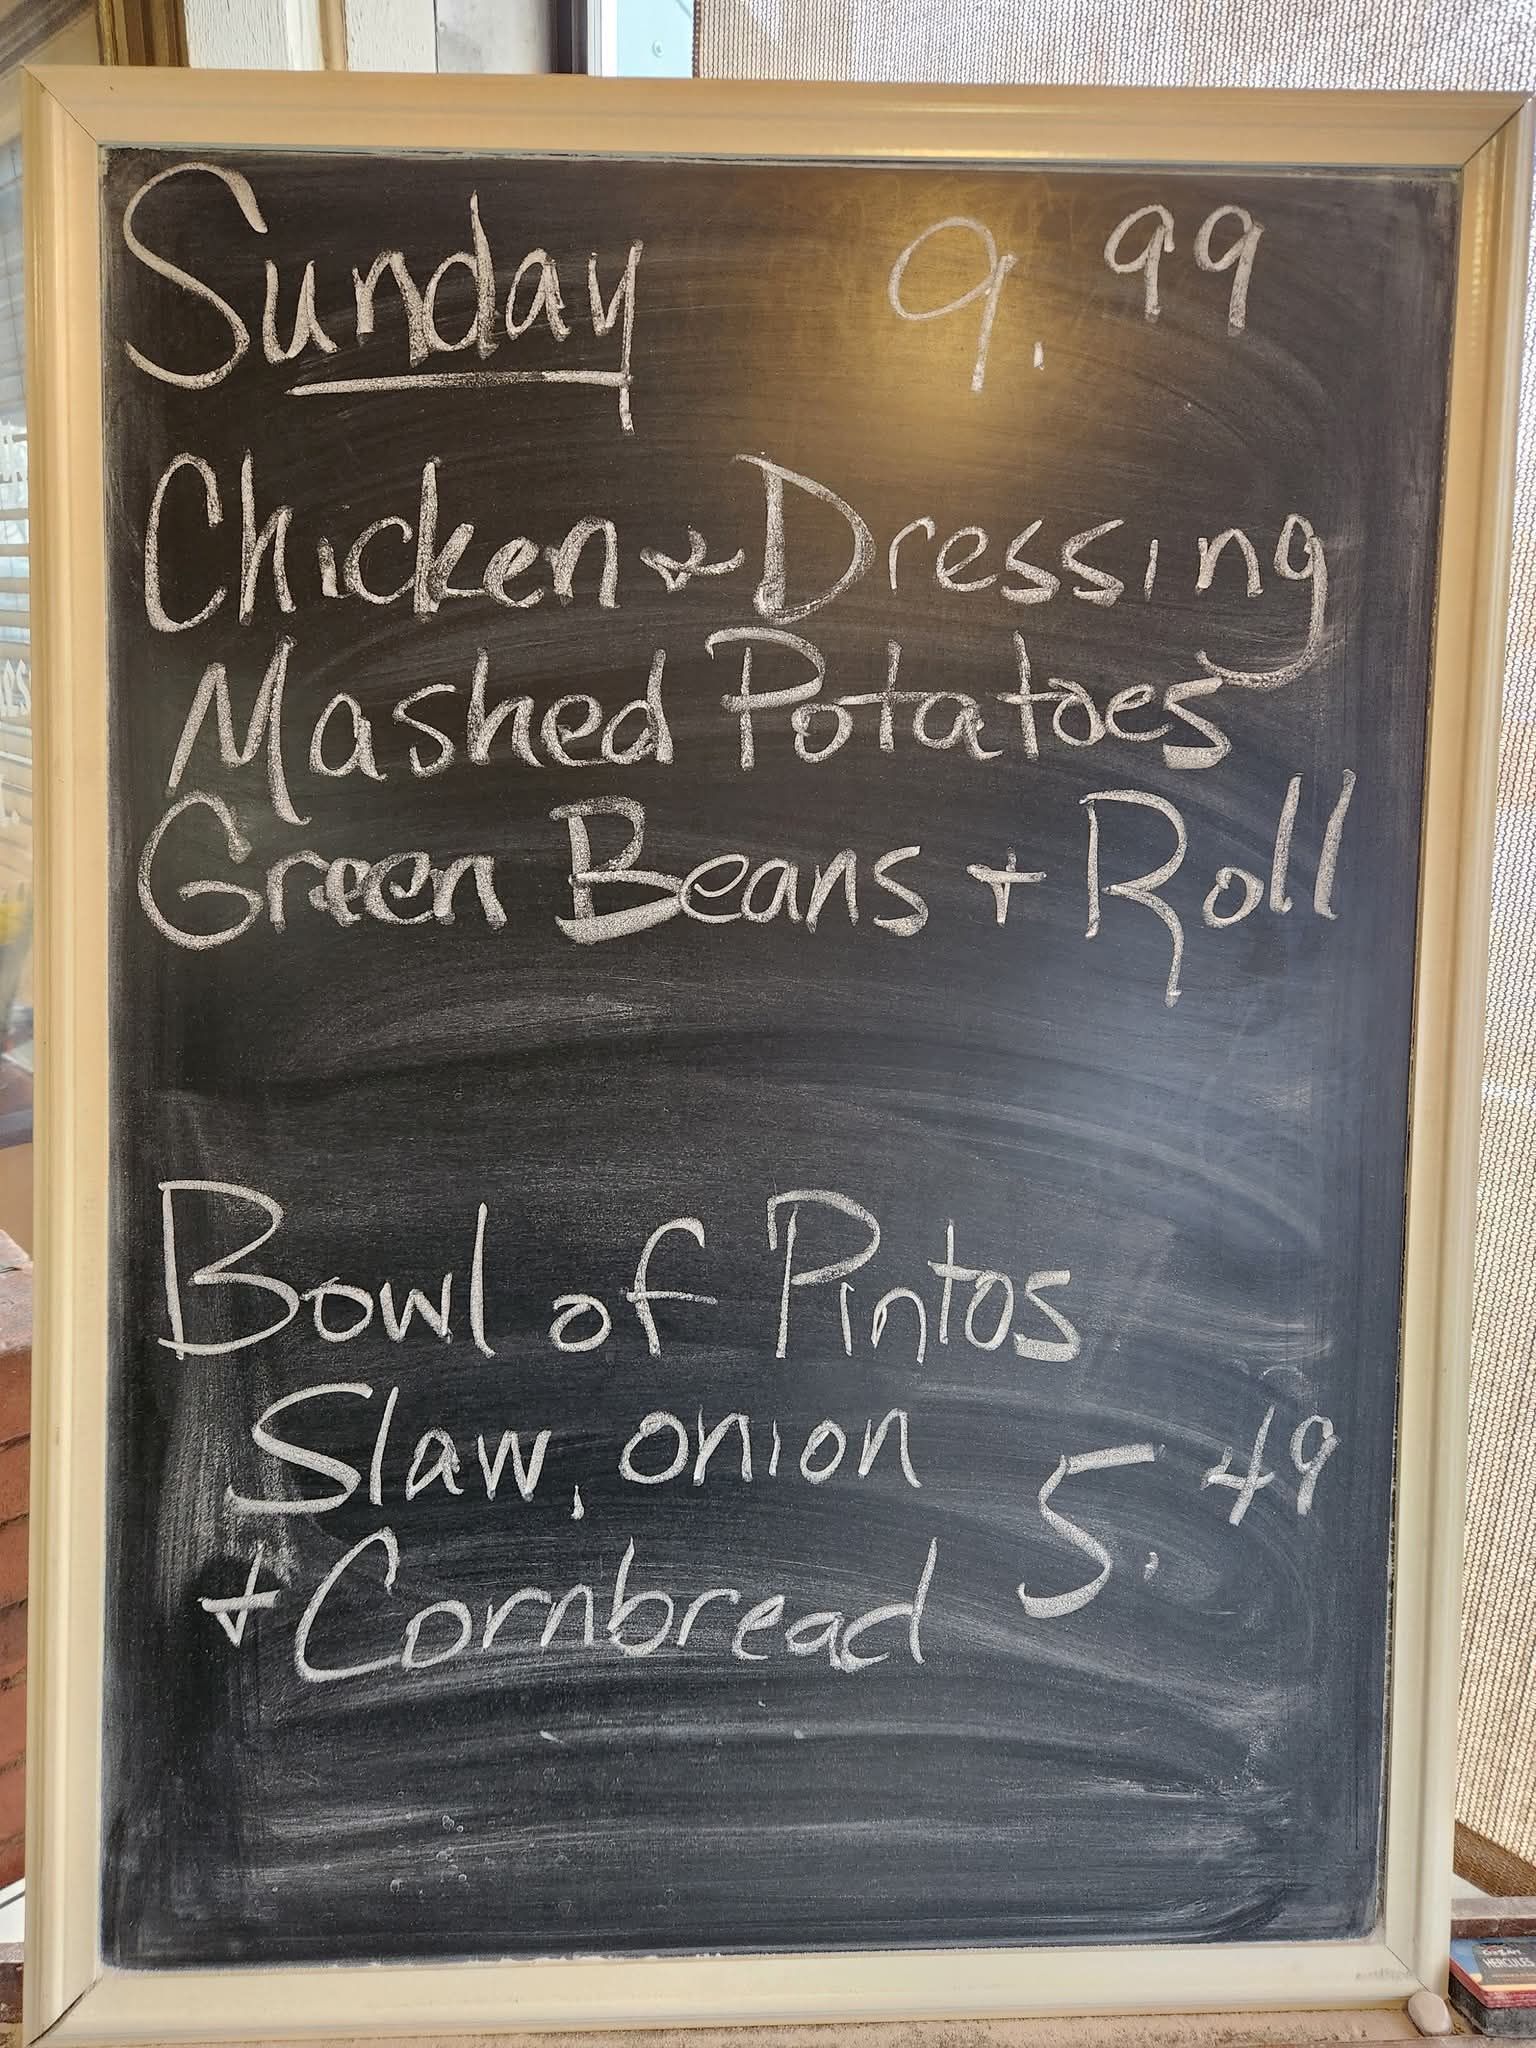 Sunday 9.99
Chicken & Dressing
Mashed Potatoes
Green Beans + Roll
Bowl of Pintos
Slaw, onion 5.49
+ Cornbread
HERCULES